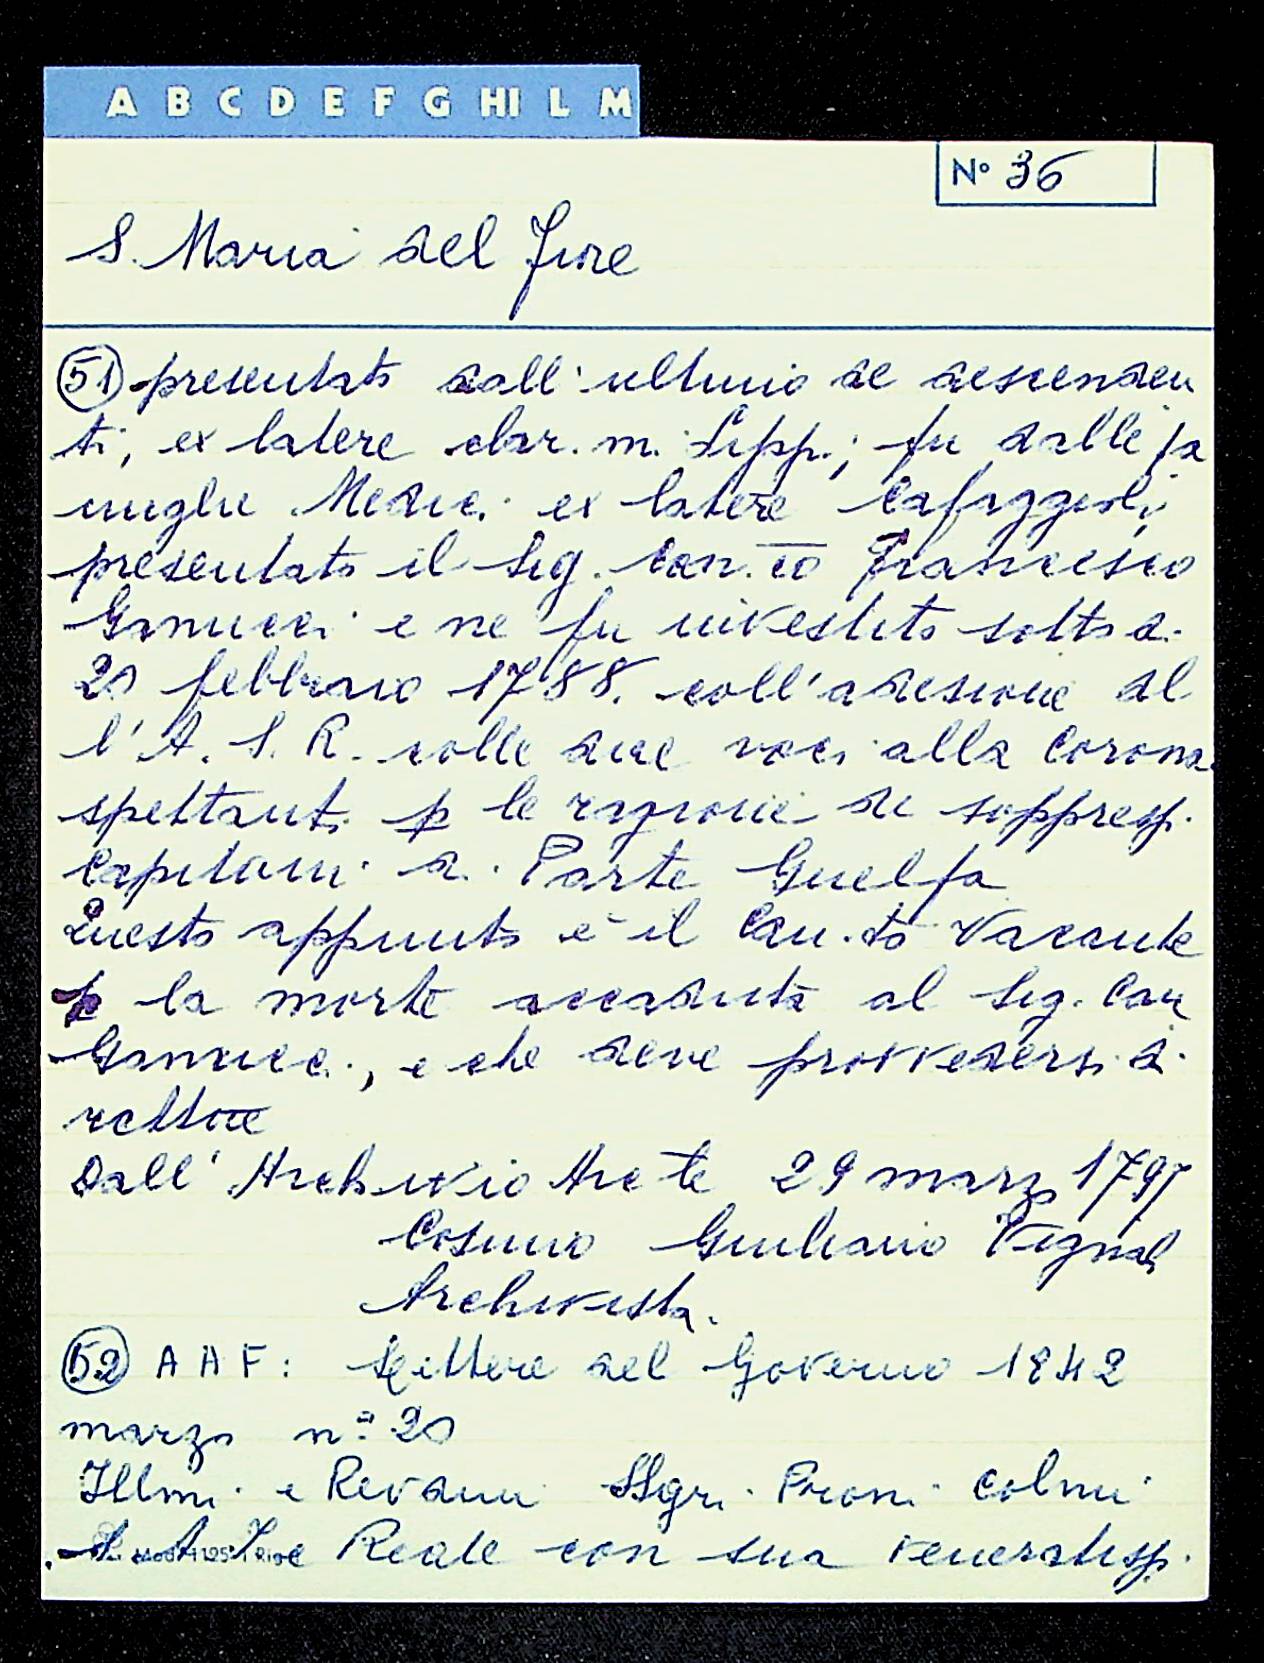 A B C D E F G HI L M
N° 36
S. Maria del Fiore
51 presentato dall'ultimo de descenden
ti, ex latere clar. m. Lipp.; fu dalle fa
miglie Medici ex latere Cafaggioli,
presentato il Sig. Can.co Francesco
Ganucci e ne fu investito sotto di
20 febbraio 1788. coll'adesione al
l'A. S. R. colle due voci alla Corona
spettanti p le ragioni de soppressi.
Capitani di Parte Guelfa
Questo appunto è il Can.to Vacante
p la morte accaduta al Sig. Can
Ganucci, e che deve provvedersi di
rettore
Dall'Archivio Arc te 29 marzo 1797
Cosimo Giuliano Vignali
Archivista.
52 A A F: Lettere del Governo 1842
marzo n° 20
Illmi e Revdmi SSgri Proni Colmi
S. A. I. e Reale con sua veneratiss.